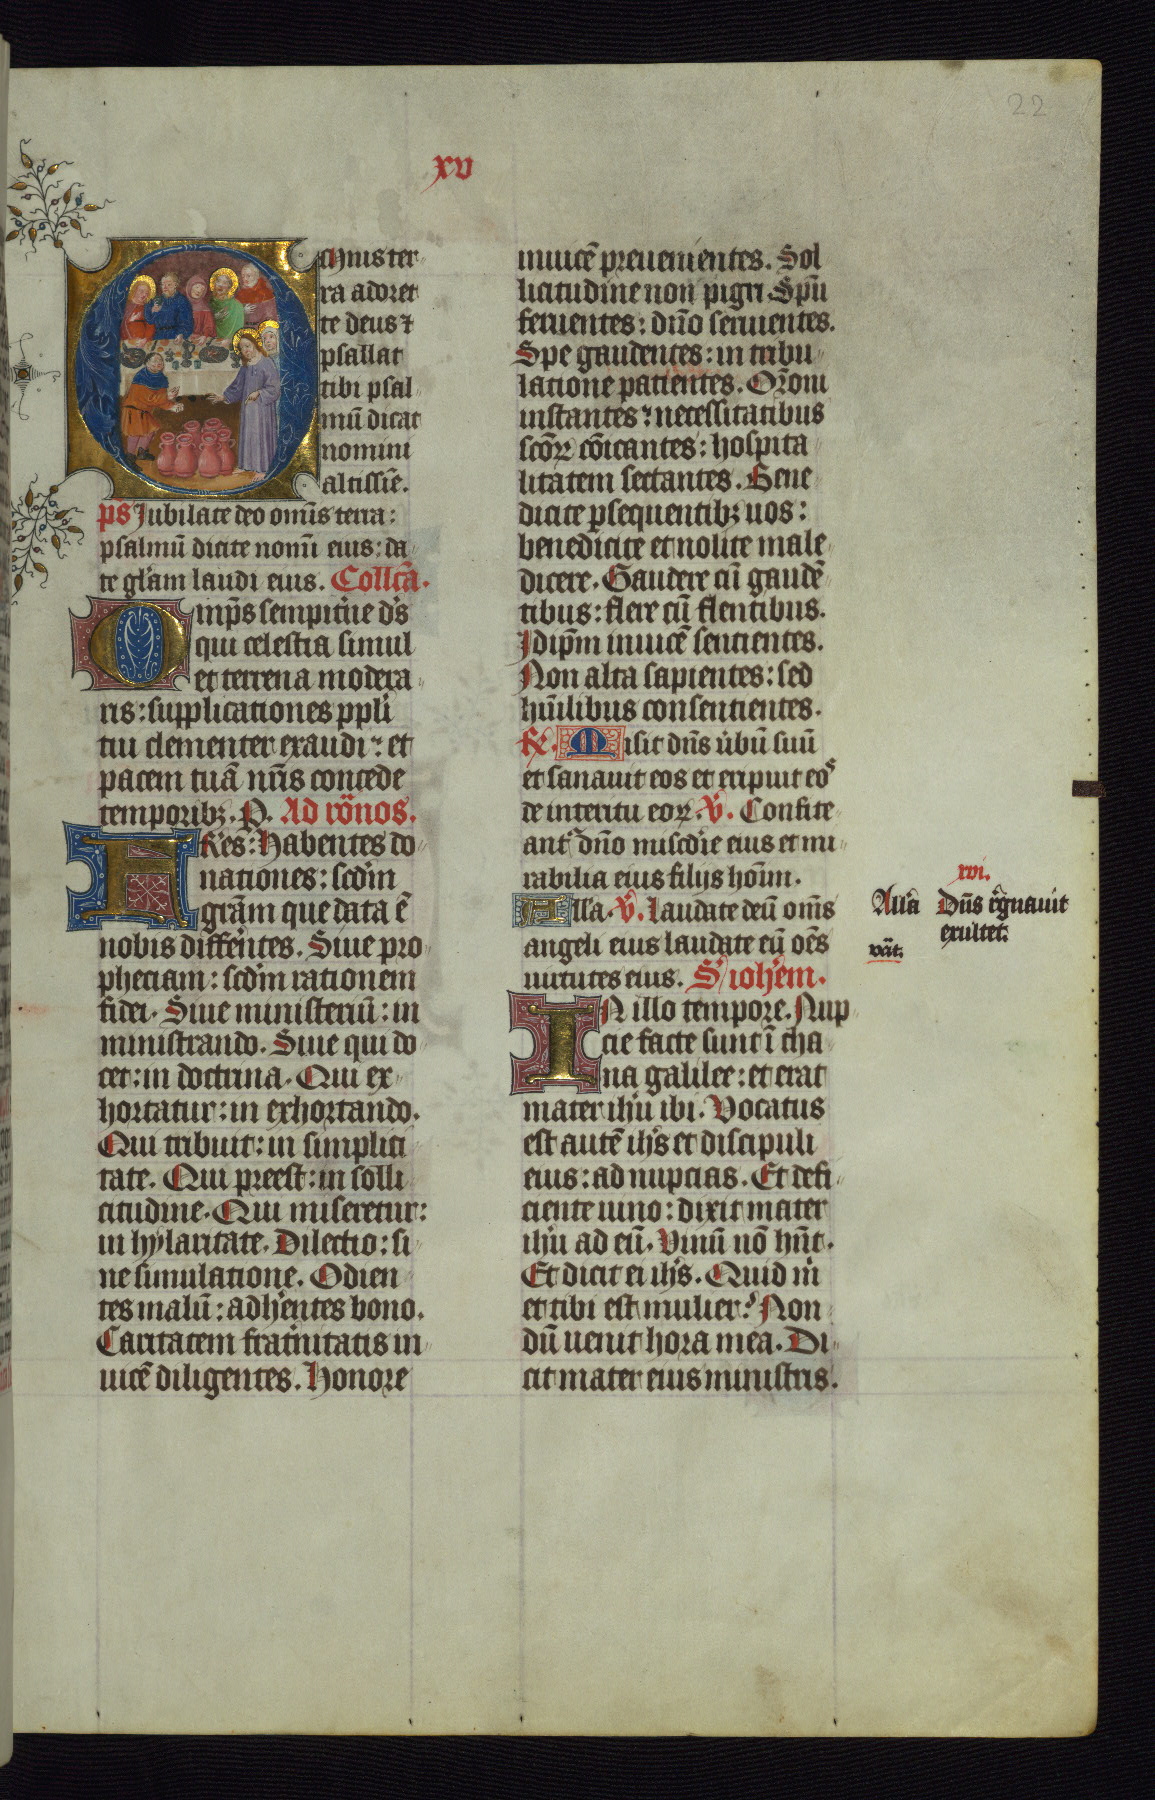 22
xv
Omnis ter
ra adoret
te deus ⁊
psallat
tibi psal
mū dicat
nomini
altissīe.
p̄s Iubilate deo omīs terra:
psalmū dicite nomī eius: da
te gl̄am laudi eius. Collc̄a.
Omp̄s sempit̄ne ds̄
qui celestia simul
et terrena modera
ris: supplicationes ppl̄i
tui clementer exaudi: et
pacem tuā nr̄is concede
temporibꝫ. P. Ad rōnos.
Fr̄es: Habentes do
nationes: scd̄m
gr̄am que data ē
nobis diffēntes. Siue pro
pheciam: scd̄m rationem
fidei. Siue ministeriū: in
ministrando. Siue qui do
cet: in doctrina. Qui ex
hortatur: in exhortando.
Qui tribuit: in simplici
tate. Qui preest: in solli
citudine. Qui miseretur:
in hylaritate. Dilectio: si
ne simulatione. Odien
tes malū: adhēntes bono.
Caritatem frat̄nitatis in
uicē diligentes. Honore
inuicē preuenientes. Sol
licitudine non pigri. Sp̄u
feruentes: dn̄o seruentes.
Spe gaudentes: in tribu
latione patientes. Or̄oni
instantes: necessitatibus
scōꝝ cōicantes: hospita
litatem sectantes. Bene
dicite ꝑsequentibꝫ uos:
benedicite et nolite male
dicere. Gaudere cū gaudē
tibus: flere cū flentibus.
Idip̄m inuicē sentientes.
Non alta sapientes: sed
hūilibus consentientes.
R̄. Misit dn̄s u̇bū suū
et sanauit eos et eripuit eos
de interitu eoꝝ. V̄. Confite
ant᷑ dn̄o misc̄die eius et mi
rabilia eius filijs hoīm.
All̄a. V̄. Laudate deū om̄s
angeli eius laudate eū oēs
uirtutes eius. S. ioh̄em.
IN illo tempore. Nup
cie facte sunt ī cha
na galilee: et erat
mater ih̄u ibi. Vocatus
est autē ih̄s et discipuli
eius: ad nupcias. Et defi
ciente uino: dixit mater
ih̄u ad eū. Vinū nō hn̄t.
Et dicit ei ih̄s. Quid m̄
et tibi est mulier? Non
dū uenit hora mea. Di
cit mater eius ministris.
xvi.
All̄a Dn̄s r̄gnauit
exultet: